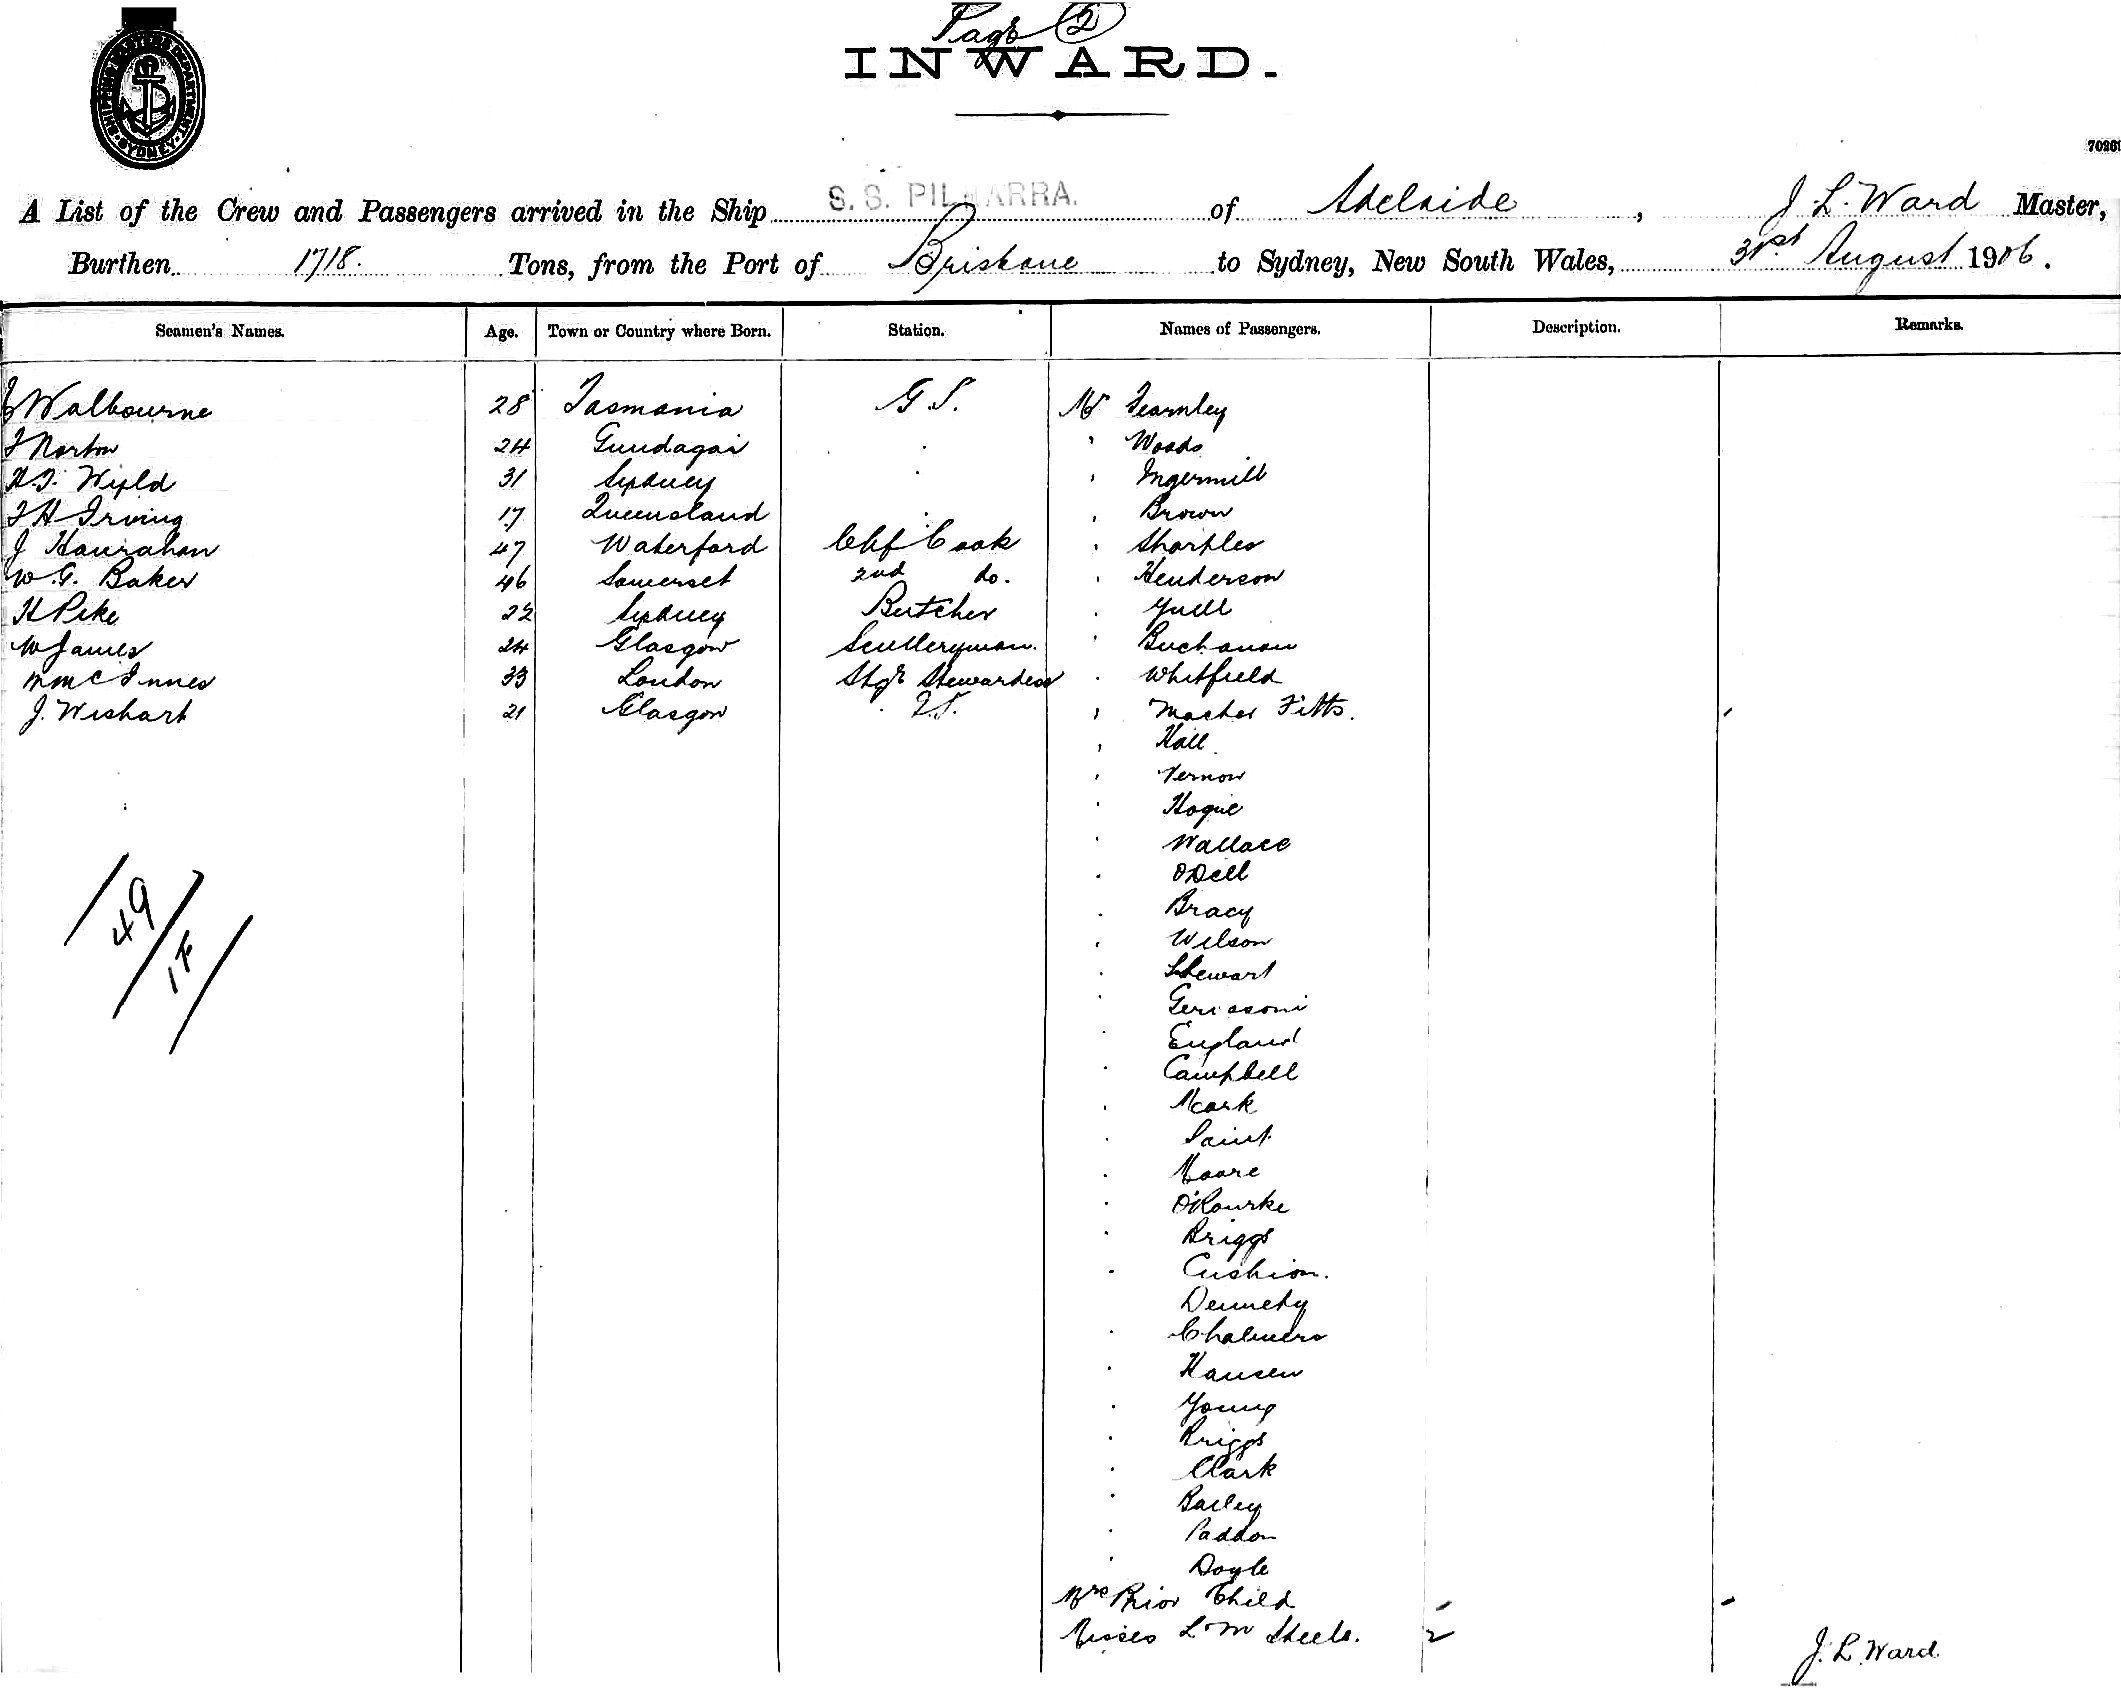 Page 2
INWARD.
SHIPPING MASTERS DEPARTMENT SYDNEY
7026
A List of the Crew and Passengers arrived in the Ship S. S. PILBARRA. of Adelaide, J L. Ward Master,
Burthen 1718. Tons, from the Port of Brisbane to Sydney, New South Wales, 31st August 1906.
Seamen's Names. Age. Town or Country where Born. Station. Names of Passengers. Description. Remarks.
Walbourne 28 Tasmania G S. Mr Fearnley
Norton 24 Gundagai " " Woods
Wyld 31 Sydney " " Ingermill
H Irving 17 Queensland " " Brown
J Hanrahan 47 Waterford Chf Cook " Sharples
W. G. Baker 46 Somerset 2nd do. " Henderson
H Pike 22 Sydney Butcher " Yuill
W James 24 Glasgow Sculleryman. " Buchanan
M McInnes 33 London Stge Stewardess " Whitfield
J. Wishart 21 Glasgow " Master Fitts.
" Hall
" Vernon
" Hogue
" Wallace
" O'Dell
" Bracy
" Wilson
" Stewart
"
" England
" Campbell
" Mark
" Saint
" Moore
" O'Rourke
" Briggs
" Cushion.
Dennehy
" Chalmers
" Hansen
" Young
" Briggs
" Clark
" Bailey
" Paddon
" Doyle
Mrs Prior Child
Misses L M Steele. 2
49
1F
J. L. Ward